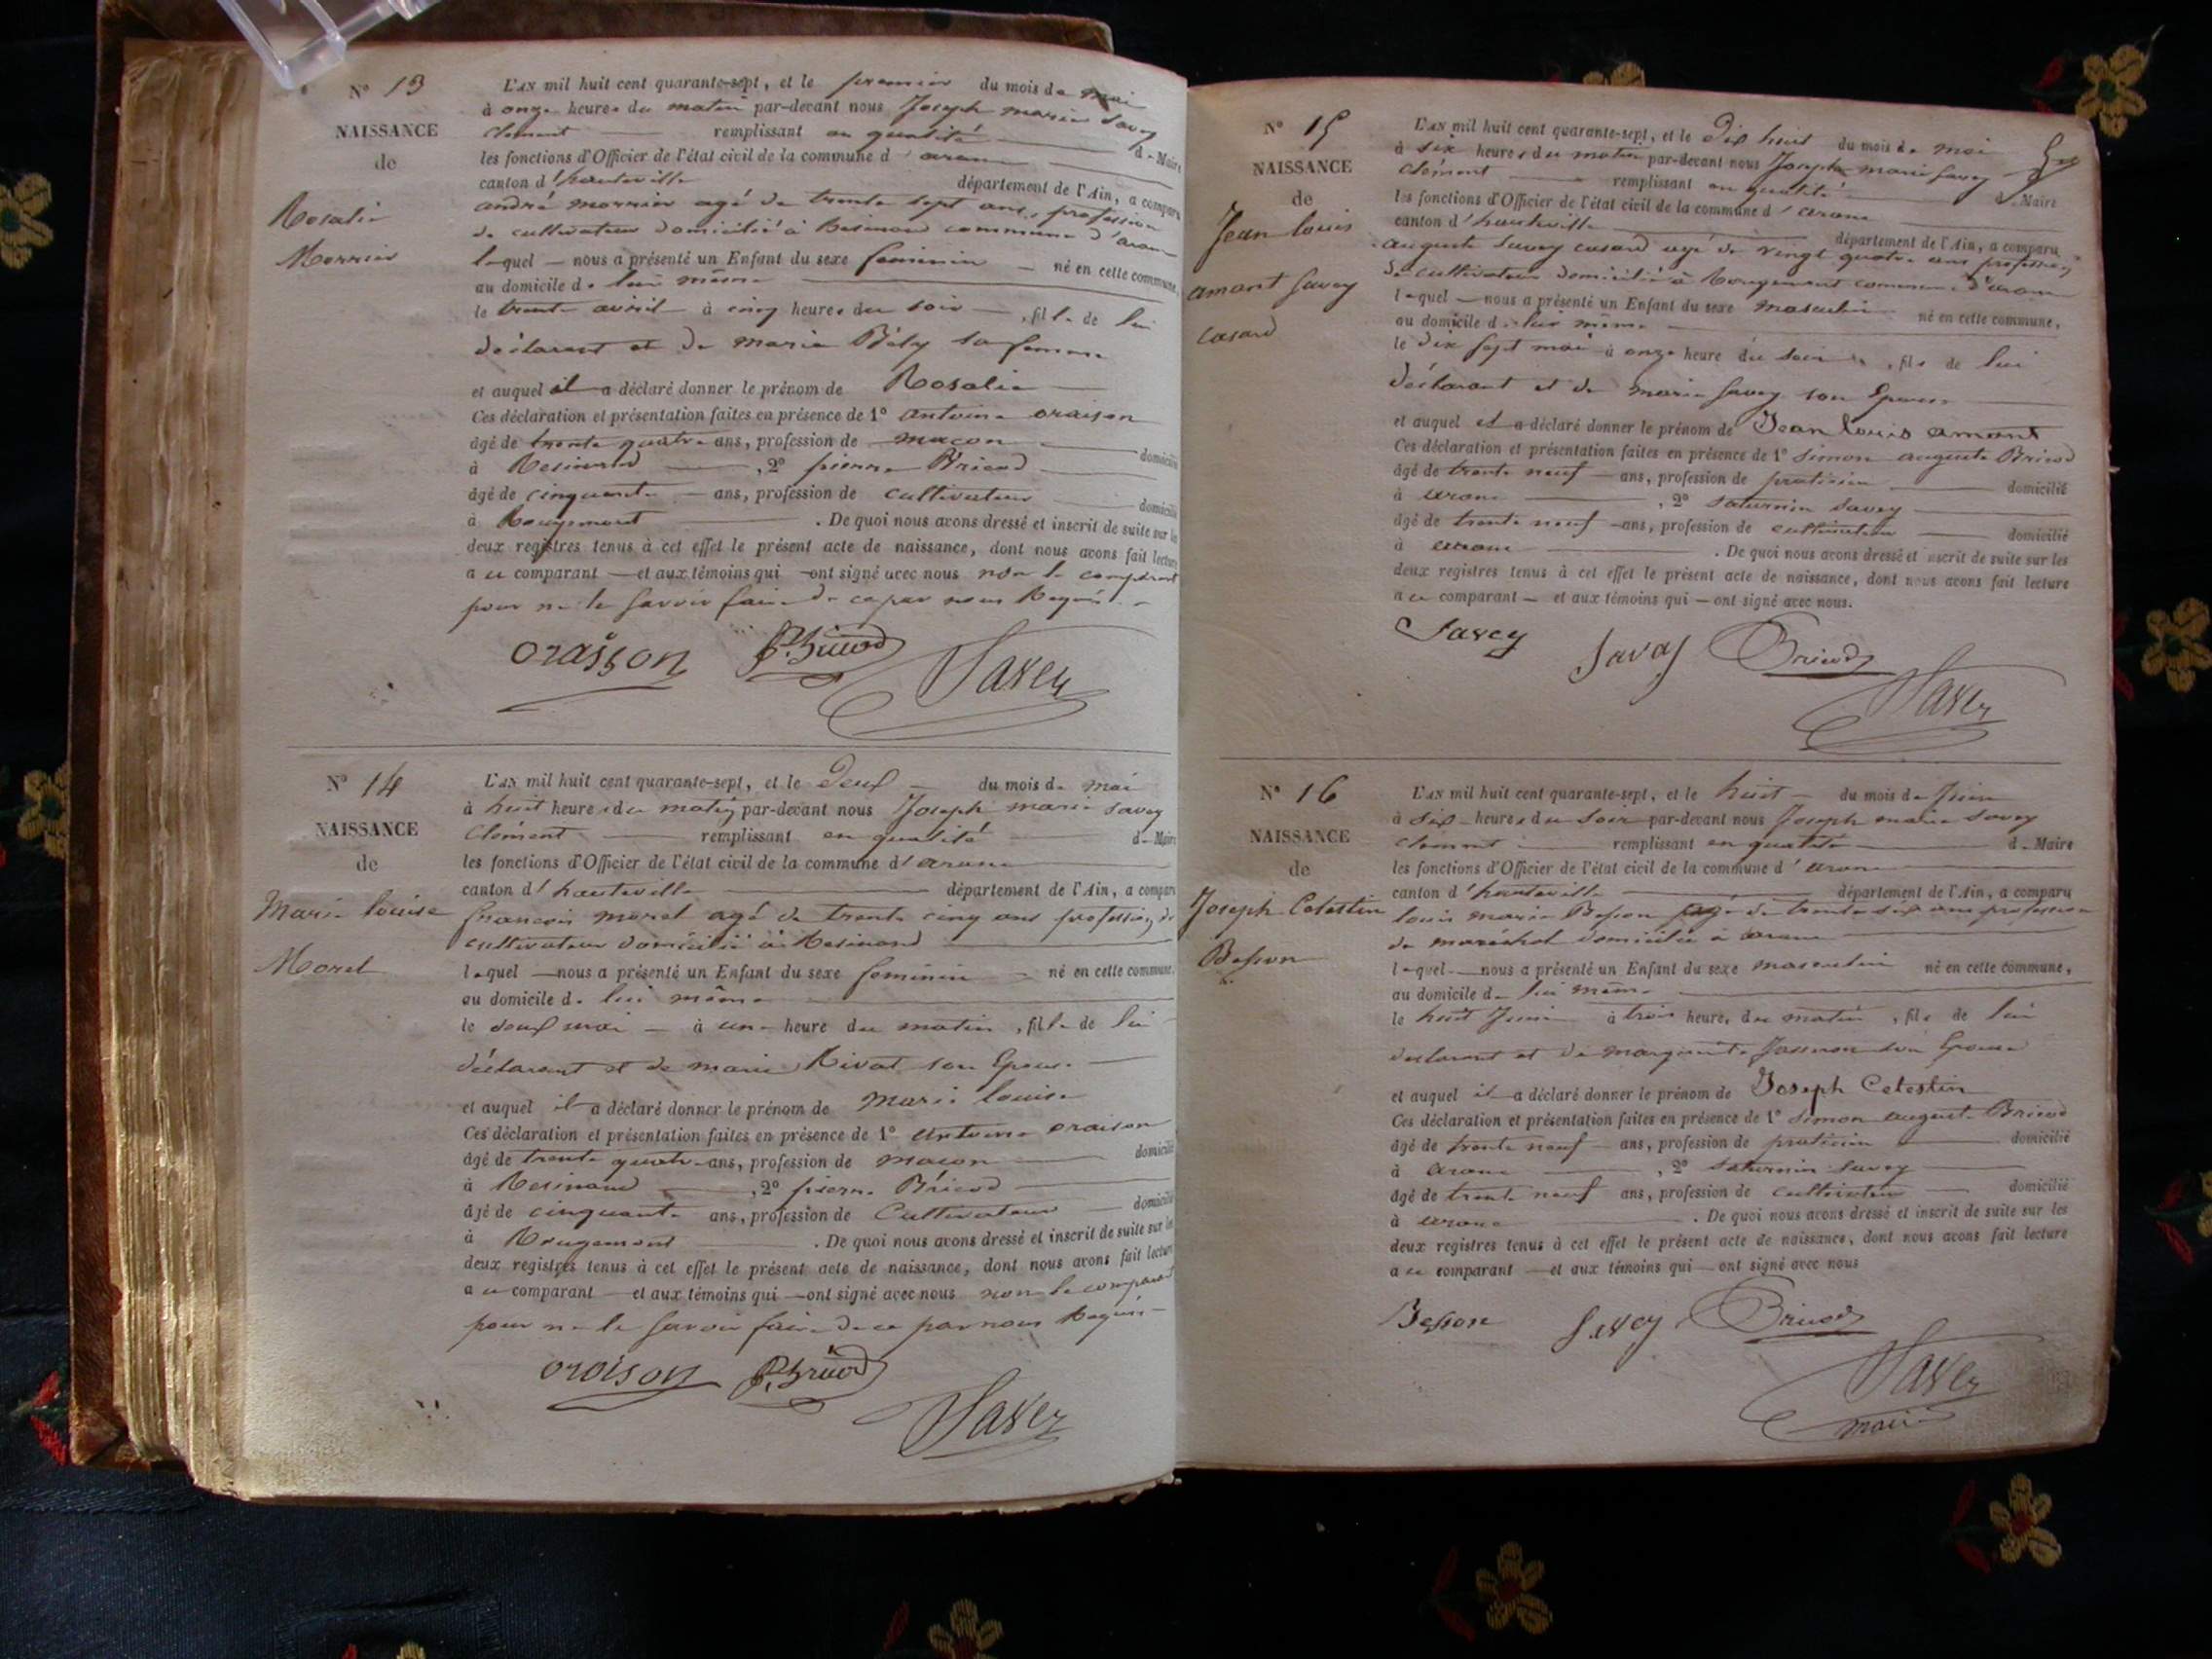 N° 13
NAISSANCE
de
Rosalie
Monnier
L'AN mil huit cent quarante-sept, et le premier du mois de mai
à onze heures du matin par-devant nous Joseph marie Savey
Clément remplissant en qualité de Maire
les fonctions d'Officier de l'état civil de la commune d'aranc
canton d'hauteville département de l'Ain, a comparu
andré monnier agé de trente sept ans, profession
de cultivateur domicilié à Resinand commune d'aranc
lequel nous a présenté un Enfant du sexe feminin né en cette commune,
au domicile de lui même
le trente avril à cinq heures du soir, fille de lui
déclarant et de marie Bély sa femme
et auquel il a déclaré donner le prénom de Rosalie
Ces déclaration et présentation faites en présence de 1° antoine oraison
âgé de trente quatre ans, profession de maçon domicilié
à Resinand, 2° pierre Bricod
âgé de cinquante ans, profession de cultivateur domicilié
à Rougemont. De quoi nous avons dressé et inscrit de suite sur les
deux registres tenus à cet effet le présent acte de naissance, dont nous avons fait lecture
a ce comparant et aux témoins qui ont signé avec nous non le comparant
pour ne le savoir faire de ce par nous Requis
oraison P. Bricod Savey
N° 14
NAISSANCE
de
Marie louise
Morel
L'AN mil huit cent quarante-sept, et le Deux du mois de mai
à huit heures du matin par-devant nous Joseph marie savey
Clément remplissant en qualité de Maire
les fonctions d'Officier de l'état civil de la commune d'aranc
canton d'hauteville département de l'Ain, a comparu
françois morel agé de trente cinq ans profession de
cultivateur domicilié à Resinand
lequel nous a présenté un Enfant du sexe feminin né en cette commune,
au domicile de lui même
le deux mai à une heure du matin, fille de lui
déclarant et de marie Rivat son Epouse
et auquel il a déclaré donner le prénom de Marie louise
Ces déclaration et présentation faites en présence de 1° antoine oraison
âgé de trente quatre ans, profession de maçon domicilié
à Resinand, 2° pierre Bricod
âgé de cinquante ans, profession de Cultivateur domicilié
à Rougemont. De quoi nous avons dressé et inscrit de suite sur les
deux registres tenus à cet effet le présent acte de naissance, dont nous avons fait lecture
a ce comparant et aux témoins qui ont signé avec nous non le comparant
pour ne le savoir faire de ce par nous Requis
oraison P. Bricod Savey
N° 15
NAISSANCE
de
Jean louis
amant savey
casard
L'AN mil huit cent quarante-sept, et le Dix huit du mois de mai
à six heures du matin par-devant nous Joseph marie savey
Clément remplissant en qualité de Maire
les fonctions d'Officier de l'état civil de la commune d'aranc
canton d'hauteville département de l'Ain, a comparu
auguste savey casard agé de vingt quatre ans profession
de cultivateur domicilié à Rougemont commune d'aranc
lequel nous a présenté un Enfant du sexe masculin né en cette commune,
au domicile de lui même
le dix sept mai à onze heure du soir, fils de lui
déclarant et de marie savey son Epouse
et auquel il a déclaré donner le prénom de Jean louis amant
Ces déclaration et présentation faites en présence de 1° simon auguste Bricod
âgé de trente neuf ans, profession de praticien domicilié
à aranc, 2° saturnin savey
âgé de trente neuf ans, profession de cultivateur domicilié
à aranc. De quoi nous avons dressé et inscrit de suite sur les
deux registres tenus à cet effet le présent acte de naissance, dont nous avons fait lecture
a ce comparant et aux témoins qui ont signé avec nous.
Savey Savey Bricod
Savey
N° 16
NAISSANCE
de
Joseph Celestin
Besson
L'AN mil huit cent quarante-sept, et le huit du mois de Juin
à six heures du soir par-devant nous Joseph marie savey
Clément remplissant en qualité de Maire
les fonctions d'Officier de l'état civil de la commune d'aranc
canton d'hauteville département de l'Ain, a comparu
louis marie Besson agé de trente six ans profession
de maréchal domicilié à aranc
lequel nous a présenté un Enfant du sexe masculin né en cette commune,
au domicile de lui même
le huit Juin à trois heures du matin, fils de lui
déclarant et de marguerite son Epouse
et auquel il a déclaré donner le prénom de Joseph Celestin
Ces déclaration et présentation faites en présence de 1° simon auguste Bricod
âgé de trente neuf ans, profession de praticien domicilié
à aranc, 2° saturnin savey
âgé de trente neuf ans, profession de cultivateur domicilié
à aranc. De quoi nous avons dressé et inscrit de suite sur les
deux registres tenus à cet effet le présent acte de naissance, dont nous avons fait lecture
a ce comparant et aux témoins qui ont signé avec nous
Besson Savey Bricod
Savey
maire